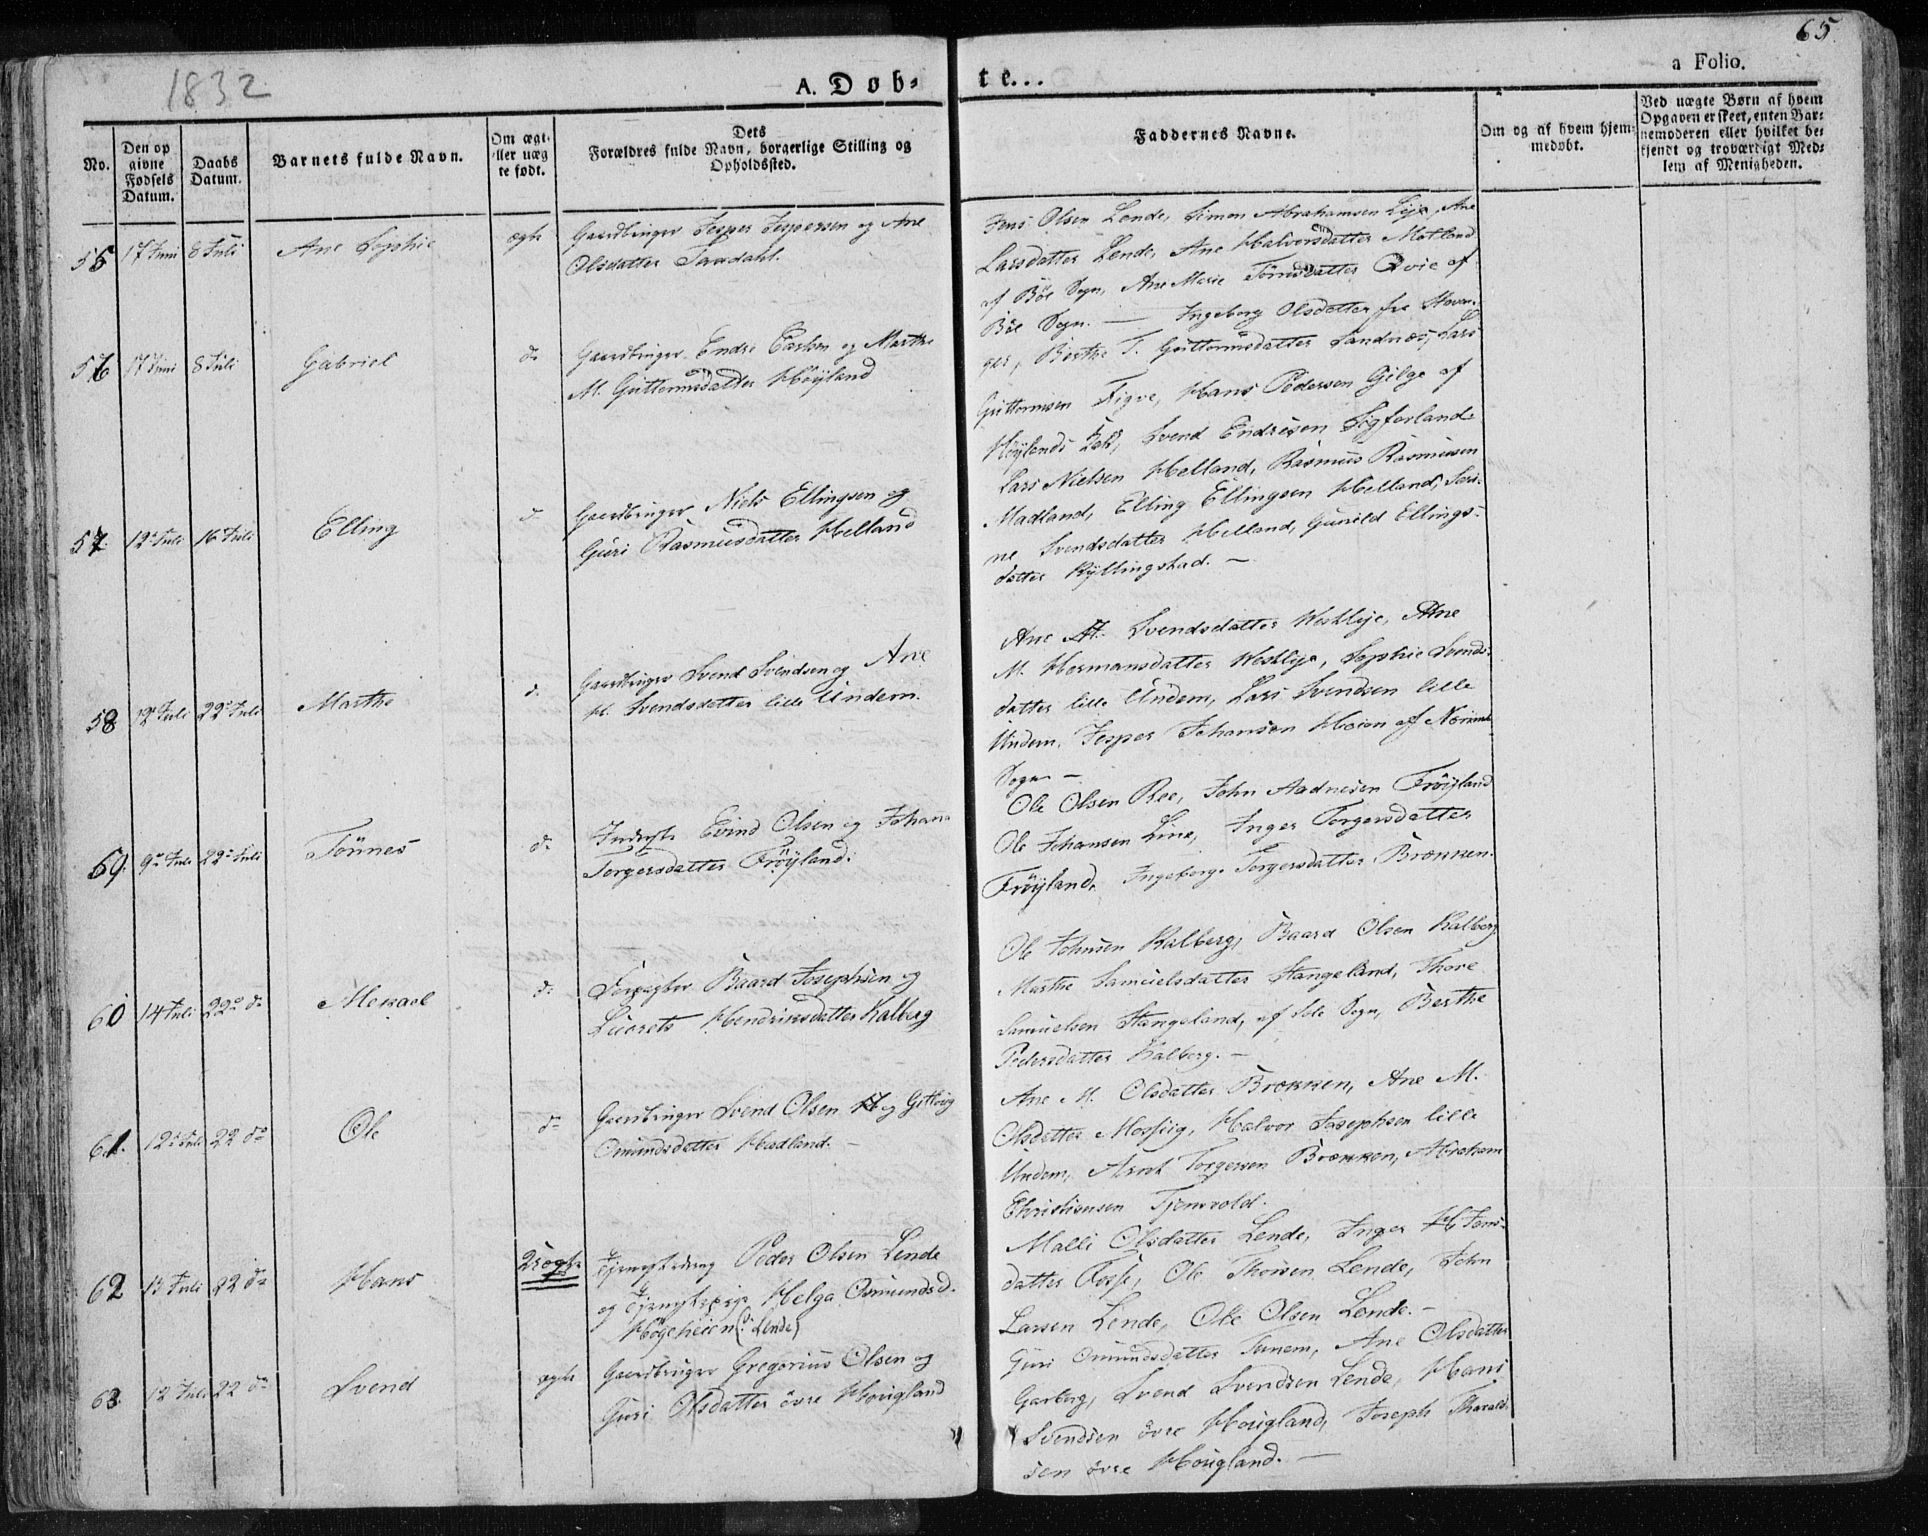 1832
65.
A. Døb=
te...
a Folio.
No.
Den op
givne
Fødsels
Datum.
Daabs
Datum.
Barnets fulde Navn.
Om ægt-
eller uæg
te født.
Dets
Forældres fulde Navn, borgerlige Stilling og
Opholdssted.
Faddernes Navne.
Om og af hvem hjem-
medøbt.
Ved uægte Børn af hvem
Opgaven er skeet, enten Bar-
nemoderen eller hvilket be-
kjendt og troværdigt Med-
lem af Menigheden.
55 17 Juni 8 Juli Ane Sophie ægte Gaardbruger Jesper Jespersen og Ane
Olsdatter
Jens Olsen Lende, Simon Abrahamsen Lye, Ane
Larsdatter Lende, Ane Halvorsdatter Motland
af Bøe Sogn, Ane Marie Tönnisdatter Qvie af
Bøe Sogn. —
56 17 Juni 8 Juli Gabriel do Gaardbruger Endre og Marthe
M. Guttormsdatter Höÿland
Ingeborg Olsdatter fra Stavan-
ger, Berthe T. Guttormsdatter Sandnæs, Lars
Guttormsen Figve, Hans Pedersen Gilge af
Höÿlands, Svend Endresen
57. 12 Juli 16 Juli Elling do Gaardbruger Niels Ellingsen og
Guri Rasmusdatter Helland
Lars Nielsen Helland, Rasmus Rasmussen
Madland, Elling Ellingsen Helland, Seri-
ne Svendsdatter Helland, Gunild Ellings-
datter Kÿllingstad. —
58 12 Juli 22 Juli Marthe do Gaardbruger Svend Svendsen og Ane
M. Svendsdatter lille Undem.
Ane M. Svendsdatter Westlye, Ane
M. Hermansdatter Westlye, Sophie Svends-
datter lille Undem, Lars Svendsen lille
Undem, Jesper Johansen
Sogn —
59. 9 Juli 22 Juli Tönnes do Inderste Eivind Olsen og Johana
Torgersdatter Fröÿland.
Ole Olsen Ree, John Aadnesen Fröÿland
Ole Johansen Line, Inger Torgersdatter
Fröÿland, Ingeborg Torgersdatter Brekken.
60 14 Juli 22 do Mekael do Forpagter Baard Josephsen og
Hendriksdatter Kalberg
Ole Johnsen Kalberg, Baard Olsen Kalberg
Marthe Samuelsdatter Stangeland, Thore
Samuelsen Stangeland, af Sole Sogn, Berthe
Pedersdatter Kalberg. —
61. 12 Juli 22 do Ole do Gaardbruger Svend Olsen og
Omundsdatter Hadland. —
Ane M. Olsdatter Brekken, Ane M.
Olsdatter Mossig, Halvor Josephsen lille
Undem, Arnt Torgersen Brekken, Abraham
Christiansen Tjensvold.
62 13 Juli 22 do Hans 2 uægte Tjenestedreng Peder Olsen Lende
og Tjenestepige Helga Omundsd.
Högeheien (: Lende)
Malli Olsdatter Lende, Inger Jens-
datter Fosse, Ole Thorsen Lende, John
Larsen Lende, Ole Olsen Lende. —
63. 12 Juli 22 do Svend ægte Gaardbruger Gregorius Olsen og
Guri Olsdatter övre Hougland
Guri Omundsdatter Tunem, Ane Olsdatter
Garberg, Svend Svendsen Lende, Hans
Svendsen övre Hougland, Joseph Tharald-
sen övre Hougland. —